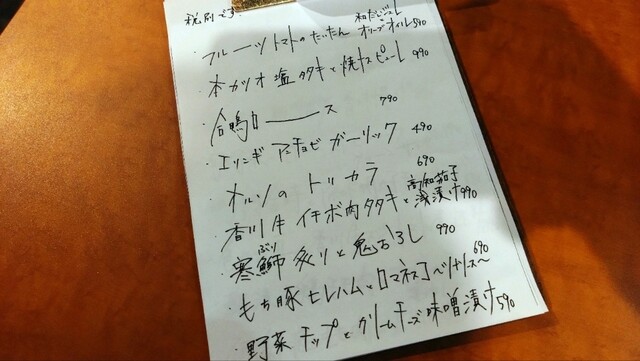 税別です。
・フルーツトマトのたいたん 和だしジュレ オリーブオイル 590
・本カツオ塩タタキと焼ナスピューレ 990
・合鴨ロース 790
・エリンギアンチョビガーリック 490
・オルソのトリカラ 690
・香川牛イチボ肉タタキと高知茄子浅漬け 990
・寒鰤炙りと鬼おろし 990
ぶり
・もち豚ヒレハムとロマネスコ 690
・野菜チップとクリームチーズ味噌漬け 590